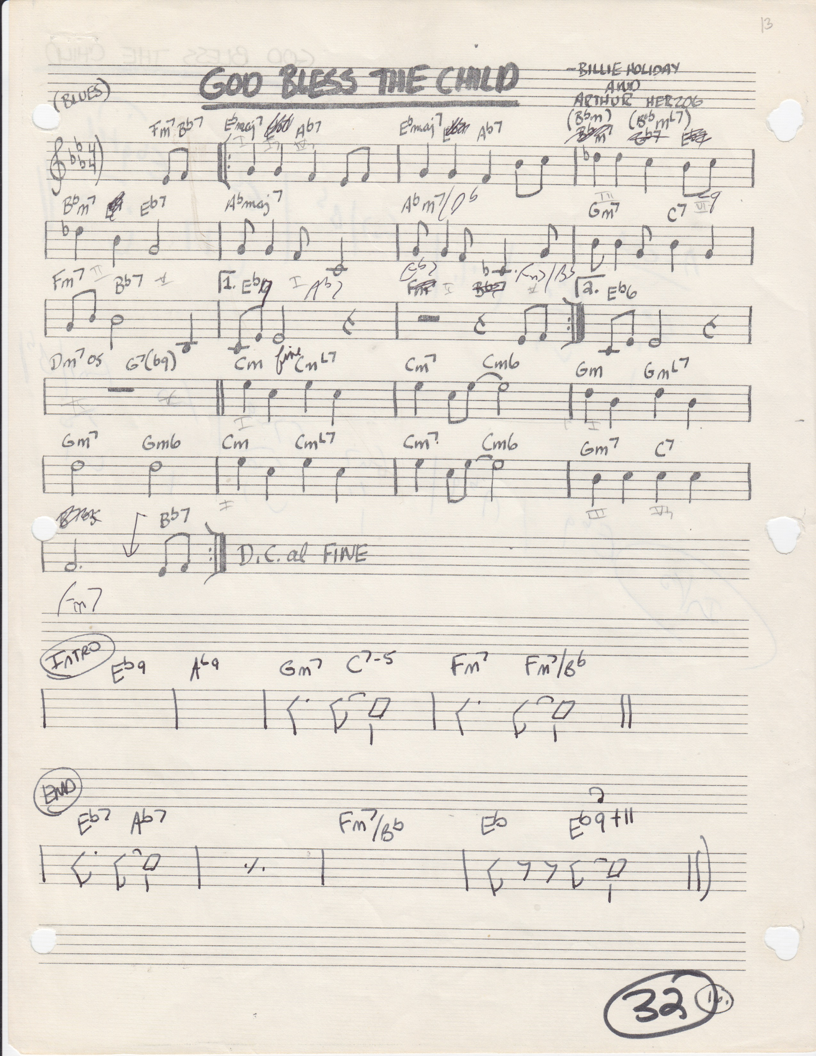 13
GOD BLESS THE CHILD
-BILLIE HOLIDAY
AND
ARTHUR HERZOG
(BLUES)
Fm7 Bb7 Ebmaj7 Ab7 Ebmaj7 Ab7 (Bbm7) (BbmL7)
Bbm7 Eb7 Abmaj7 Abm7/Db Gm7 C7
Fm7 Bb7 1. Eb Ab7 (Eb7) Fm7/Bb 2. Eb6
Dm7 G7(b9) Cm fine CmL7 Cm7 Cm6 Gm GmL7
Gm7 Gm6 Cm CmL7 Cm7 Cm6 Gm7 C7
Bb7
D.C. al FINE
Fm7
INTRO
Eb9 Ab9 Gm7 C7-5 Fm7 Fm7/Bb
END
Eb7 Ab7 Fm7/Bb Eb Eb9+11
32 16.